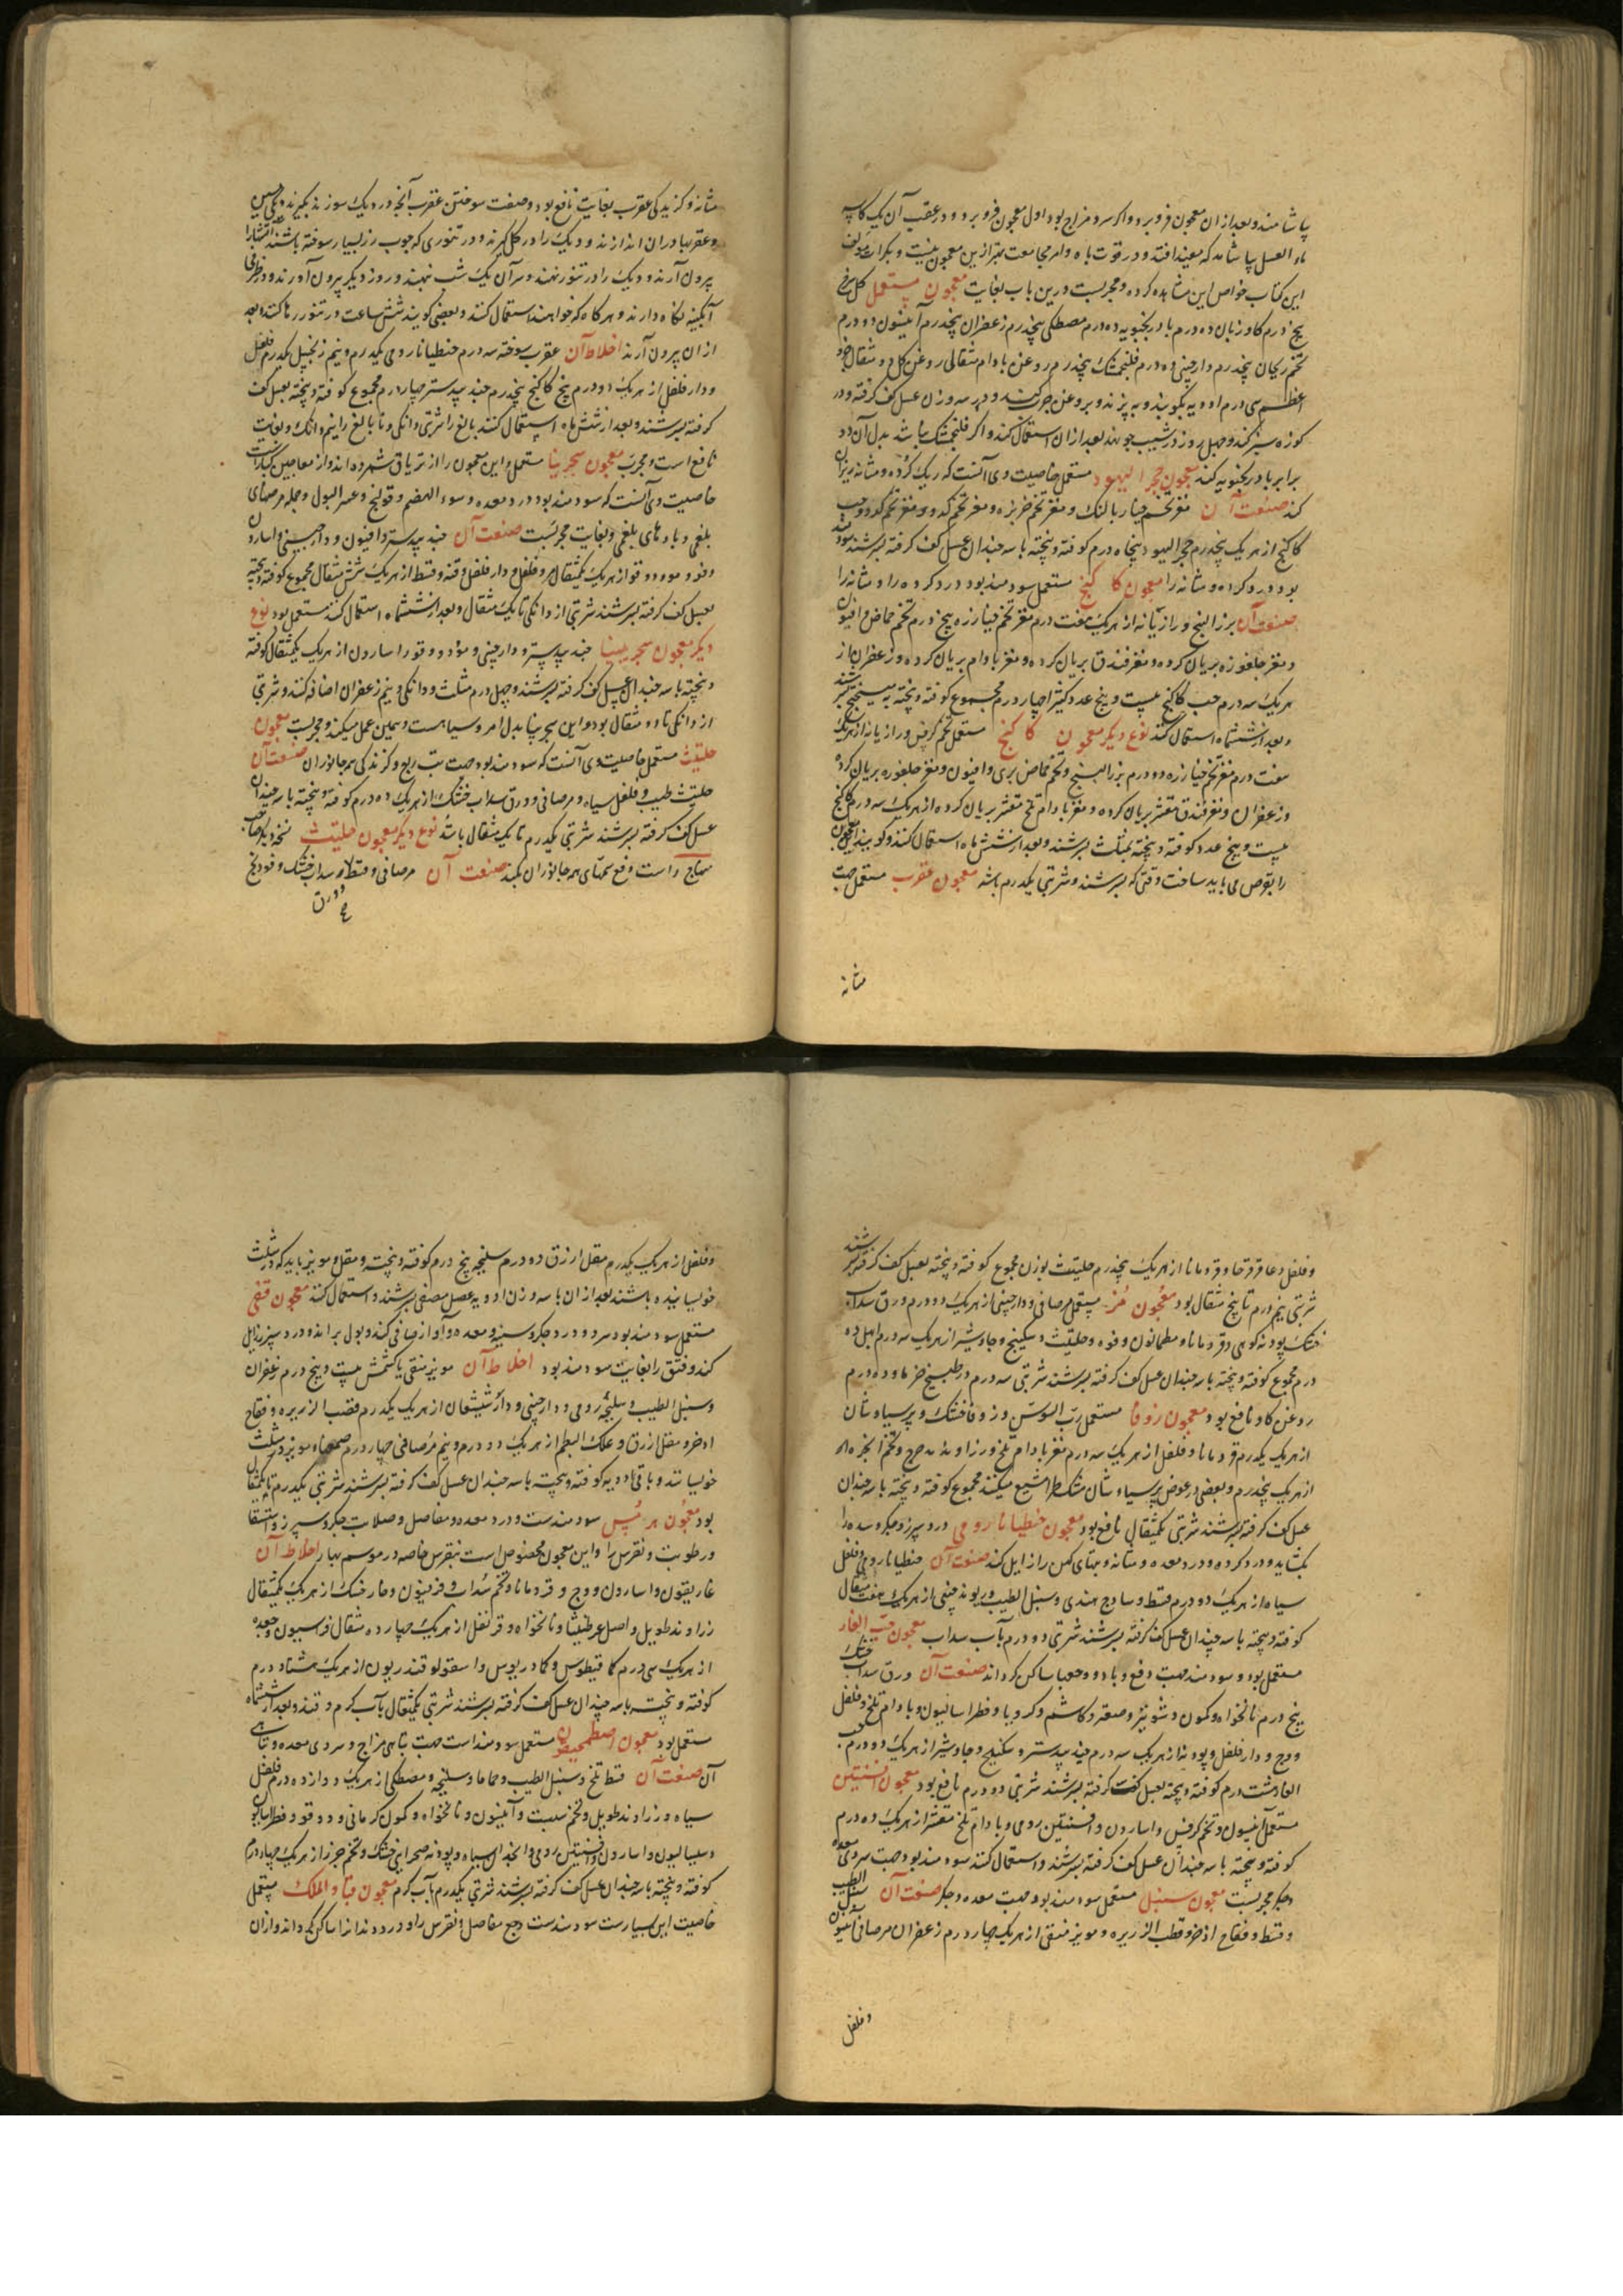 پاشامند و بعد از ان معجون فرو برد و اکر سرد مزاج بود اول معجون فرو برد و در عقب آن یک کاسه
ماء العسل بیاشامد که مفید افتد و در قوت باه و امر مجامعت بهتر ازین معجون نیست و بکرات مولف
این کتاب خواص این مشاهده کرده و مجربست درین باب بغایت معجون مستعمل کل سرخ
پنج درم کاو زبان ده درم بادرنجبویه ده درم مصطکی پنجدرم زعفران پنجدرم آنیسون دو درم
تخم ریحان پنجدرم دارچینی ده درم فلنجمشک پنجدرم روغن بادام مثقالی روغن کل دو مثقال
سی درم ادویه بکوبند و به پزند و بروغن چرب کنند و در سه وزن عسل کف کرفته و در
کوزه سبز کنند و چهل روز در شیب جو نهند بعد از ان استعمال کنند و اکر فلنجمشک نباشد بدل آن دو
برابر بادرنجبویه کنند معجون حجر الیهود مستعمل خاصیت وی آنست که ریک کرده و مثانه بریزاند
کند صنعت آن مغز تخم خیار بالنک و مغز تخم خربزه و مغز تخم کدو و حب
کاکنج از هر یک پنجدرم حجر الیهود پنجاه درم کوفته و بیخته با سه چندان عسل کف کرفته بسرشند سودمند
بود درد کرده و مثانه را معجون کاکنج مستعمل سودمند بود درد کرده را و مثانه را
صنعت آن بزر البنج و رازیانه از هر یک هفت درم مغز تخم خیارزه پنج درم تخم حماض و افیون
و مغز جلغوزه بریان کرده و مغز فندق بریان کرده و مغز بادام بریان کرده و زعفران از
هر یک سه درم حب کاکنج بیست و پنج عدد کثیرا چهار درم مجموع کوفته و بیخته به میبختج بسرشند
و بعد از ششماه استعمال کنند نوع دیکر معجون کاکنج مستعمل تخم کرفس و رازیانه از هر یک
هفت درم مغز تخم خیارزه دو درم بزر البنج و تخم حماض بری و افیون و مغز جلغوزه بریان کرده
و زعفران و مغز فندق مقشر بریان کرده و مغز بادام تلخ مقشر بریان کرده از هر یک سه درم کاکنج
بیست و پنج عدد کوفته و بیخته بمثلث بسرشند و بعد از شش ماه استعمال کنند و کویند این معجون
را بقوص می باید ساخت وقتی که بسرشند و شربتی یکدرم باشد معجون عقرب مستعمل جهت
مثانه
مثانه و کزیدکی عقرب بغایت نافع بود و صنعت سوختن عقرب آنچه در دیک سوزند بکیرند دیکی مسین
و عقربها در ان اندازند و دیک را در کل کیرند و در تنوری که چوب رز بسیار سوخته باشند
بیرون آرند و دیک را در تنور نهند و سر آن یک شب نهند و روز دیکر بیرون آورند و در ظرفی
آبکینه نکاه دارند و هر کاه که خواهند استعمال کنند و بعضی کویند شش ساعت در تنور رها کنند بعد
از ان بیرون آرند اخلاط آن عقرب سوخته سه درم جنطیانا رومی یکدرم و نیم زنجبیل یکدرم فلفل
و دار فلفل از هر یک دو درم بیخ کاکنج پنجدرم جند بیدستر چهار درم مجموع کوفته و بیخته بعسل کف
کرفته بسرشند و بعد از شش ماه استعمال کنند بالغ را شربتی دانکی و نابالغ را نیم دانک و بغایت
نافع است و مجرب معجون سجرینا مستعمل و این معجون را از تریاق شمرده اند و از معاجین کبار است
خاصیت وی آنست که سودمند بود درد معده و سوء الهضم و قولنج و عسر البول و جمله مرضهای
بلغمی و بادهای بلغمی و بغایت مجربست صنعت آن جند بیدستر و افیون و دارچینی و اسارون
و فو و مو و دوقو از هر یک یکمثقال مر و فلفل و دار فلفل و قنه و قسط از هر یک شش مثقال مجموع کوفته و بیخته
بعسل کف کرفته بسرشند شربتی از دانکی تا یک مثقال و بعد از ششماه استعمال کنند مستعمل بود نوع
دیکر معجون سجرینیا جند بیدستر و دارچینی و مو و دوقو را سارون از هر یک یکمثقال کوفته
و بیخته با سه چندان عسل کف کرفته بسرشند و چهل درم مثلث و دانکی و نیم زعفران اضافه کنند و شربتی
از دانکی تا دو مثقال بود و این سجرینا بدل امروسیا هست و همین عمل میکند و مجربست معجون
حلتیت مستعمل خاصیت وی آنست که سودمند بود جهت تب ربع و کزندکی همه جانوران صنعت آن
حلتیت طیب و فلفل سیاه و مر صافی و ورق سداب خشک از هر یک ده درم کوفته و بیخته با سه چندان
عسل کف کرفته بسرشند شربتی یکدرم تا یکمثقال باشد نوع دیکر معجون حلتیت نسخه دیکر صاحب
منهاج راست دفع سمهای همه جانوران بکند صنعت آن مر صافی و قسط و سداب خشک و فودنج
و فلفل و عاقرقرحا و قردمانا از هر یک پنجدرم حلتیت بوزن مجموع کوفته و بیخته بعسل کف کرفته بسرشند
شربتی نیم درم تا پنج مثقال بود معجون مر مستعمل مر صافی و دارچینی از هر یک دو درم ورق سداب
خشک پودنه کوهی و قردمانا و فوه و حلتیت و سکبینج و جاوشیر از هر یک سه درم ابهل ده
درم مجموع کوفته و بیخته با سه چندان عسل کف کرفته بسرشند شربتی سه درم در طبیخ خرما و ده درم
روغن کاو نافع بود معجون زوفا مستعمل رب السوس و زوفا خشک و پر سیاوشان
از هر یک یکدرم قردمانا و فلفل از هر یک سه درم مغز بادام تلخ و زراوند مدحرج و تخم انجره
از هر یک پنجدرم و بعضی در عوض پر سیاوشان مشکطرامشیع میکنند مجموع کوفته و بیخته با سه چندان
عسل کف کرفته بسرشند شربتی یکمثقال نافع بود معجون جنطیانا رومی درد سپرز و جکر و سده را
بکشاید و درد کرده و درد معده و مثانه و تبهای کهن را زایل کند صنعت آن جنطیانا رومی و فلفل
سیاه از هر یک دو درم قسط و ساذج هندی و سنبل الطیب و ریوند چینی از هر یک هفت مثقال
کوفته و بیخته با سه چندان عسل کف کرفته بسرشند شربتی دو درم بآب سداب معجون حب الغار
مستعمل بود و سودمند جهت دفع و باد و وجعها ساکن کرداند صنعت آن ورق سداب خشک
پنج درم نانخواه و کمون و شونیز و صعتر و کاشم و کرویا و فطراسالیون و بادام تلخ و فلفل
و وج و دار فلفل و پودنه از هر یک سه درم جند بیدستر و سکبینج و جاوشیر از هر یک دو درم حب
الغار هشت درم کوفته و بیخته بعسل کف کرفته بسرشند شربتی دو درم نافع بود معجون افسنتین
مستعمل آنیسون و تخم کرفس و اسارون و افسنتین رومی و بادام تلخ مقشر از هر یک ده درم
کوفته و بیخته با سه چندان عسل کف کرفته بسرشند و استعمال کنند سودمند بود جهت سردی معده
و جکر مجربست معجون سنبل مستعمل سودمند بود جهت معده و جکر صنعت آن سنبل الطیب
و قسط و فقاح اذخر و قصب الزریره و مویز منقی از هر یک چهار درم زعفران مر صافی
و فلفل
و فلفل از هر یک یکدرم مقل ازرق دو درم سلیخه پنج درم کوفته و بیخته و مقل و مویز باید که در مثلث
خولیسانیده باشند بعد از ان با سه وزن ادویه عسل مصفی بسرشند و استعمال کنند معجون قفی
مستعمل سودمند بود سرد و درد جکر و سینه و معده و آواز صافی کند و بول براند و درد سپرز زایل
کند و فتق را بغایت سودمند بود اخلاط آن مویز منقی یا کشمش بیست و پنج درم زعفران
و سنبل الطیب و سلیخه رومی و دارچینی و دارشیشعان از هر یک یکدرم قصب الزریره و فقاح
اذخر و مقل ازرق و علک البطم از هر یک دو درم و نیم مر صافی چهار درم صمغها و مویز در مثلث
خولیسانند و باقی ادویه کوفته و بیخته با سه چندان عسل کف کرفته بسرشند شربتی یکدرم تا یکمثقال
بود معجون هرمس سودمندست و درد معده و مفاصل و صلابت جکر و سپرز و استسقا
و رطوبت و نقرس را و این معجون مخصوص است بنقرس خاصه در موسم بهار اخلاط آن
غاریقون و اسارون و وج و قردمانا و تخم سداب و فرفیون و خار خسک از هر یک یکمثقال
زراوند طویل و اصل عرطنیثا و نانخواه و قرنفل از هر یک چهار ده مثقال فراسیون و جعده
از هر یک سی درم کمافیطوس و کمادریوس و اسقولوقندریون از هر یک هشتاد درم
کوفته و بیخته با سه چندان عسل کف کرفته بسرشند شربتی یکمثقال بآب کرم دهند و بعد از ششماه
مستعمل بود معجون اصطمخیقون مستعمل سودمند است جهت تباهی مزاج و سردی معده و تباهی
آن صنعت آن قسط تلخ و سنبل الطیب و حماما و سلیخه و مصطکی از هر یک دوازده درم فلفل
سیاه و زراوند طویل و تخم شبت و آنیسون و نانخواه و کمون کرمانی و دوقو و فطراسالیون
و سیسالیون و اسارون و افسنتین رومی و انجدان سیاه و پودنه صحرایی خشک و تخم جزر از هر یک چهار درم
کوفته و بیخته با سه چندان عسل کف کرفته بسرشند شربتی یکدرم بآب کرم معجون قباد الملک مستعمل
خاصیت این بسیارست سودمندست وجع مفاصل و نقرس را و درد دندان را ساکن کرداند و از ان